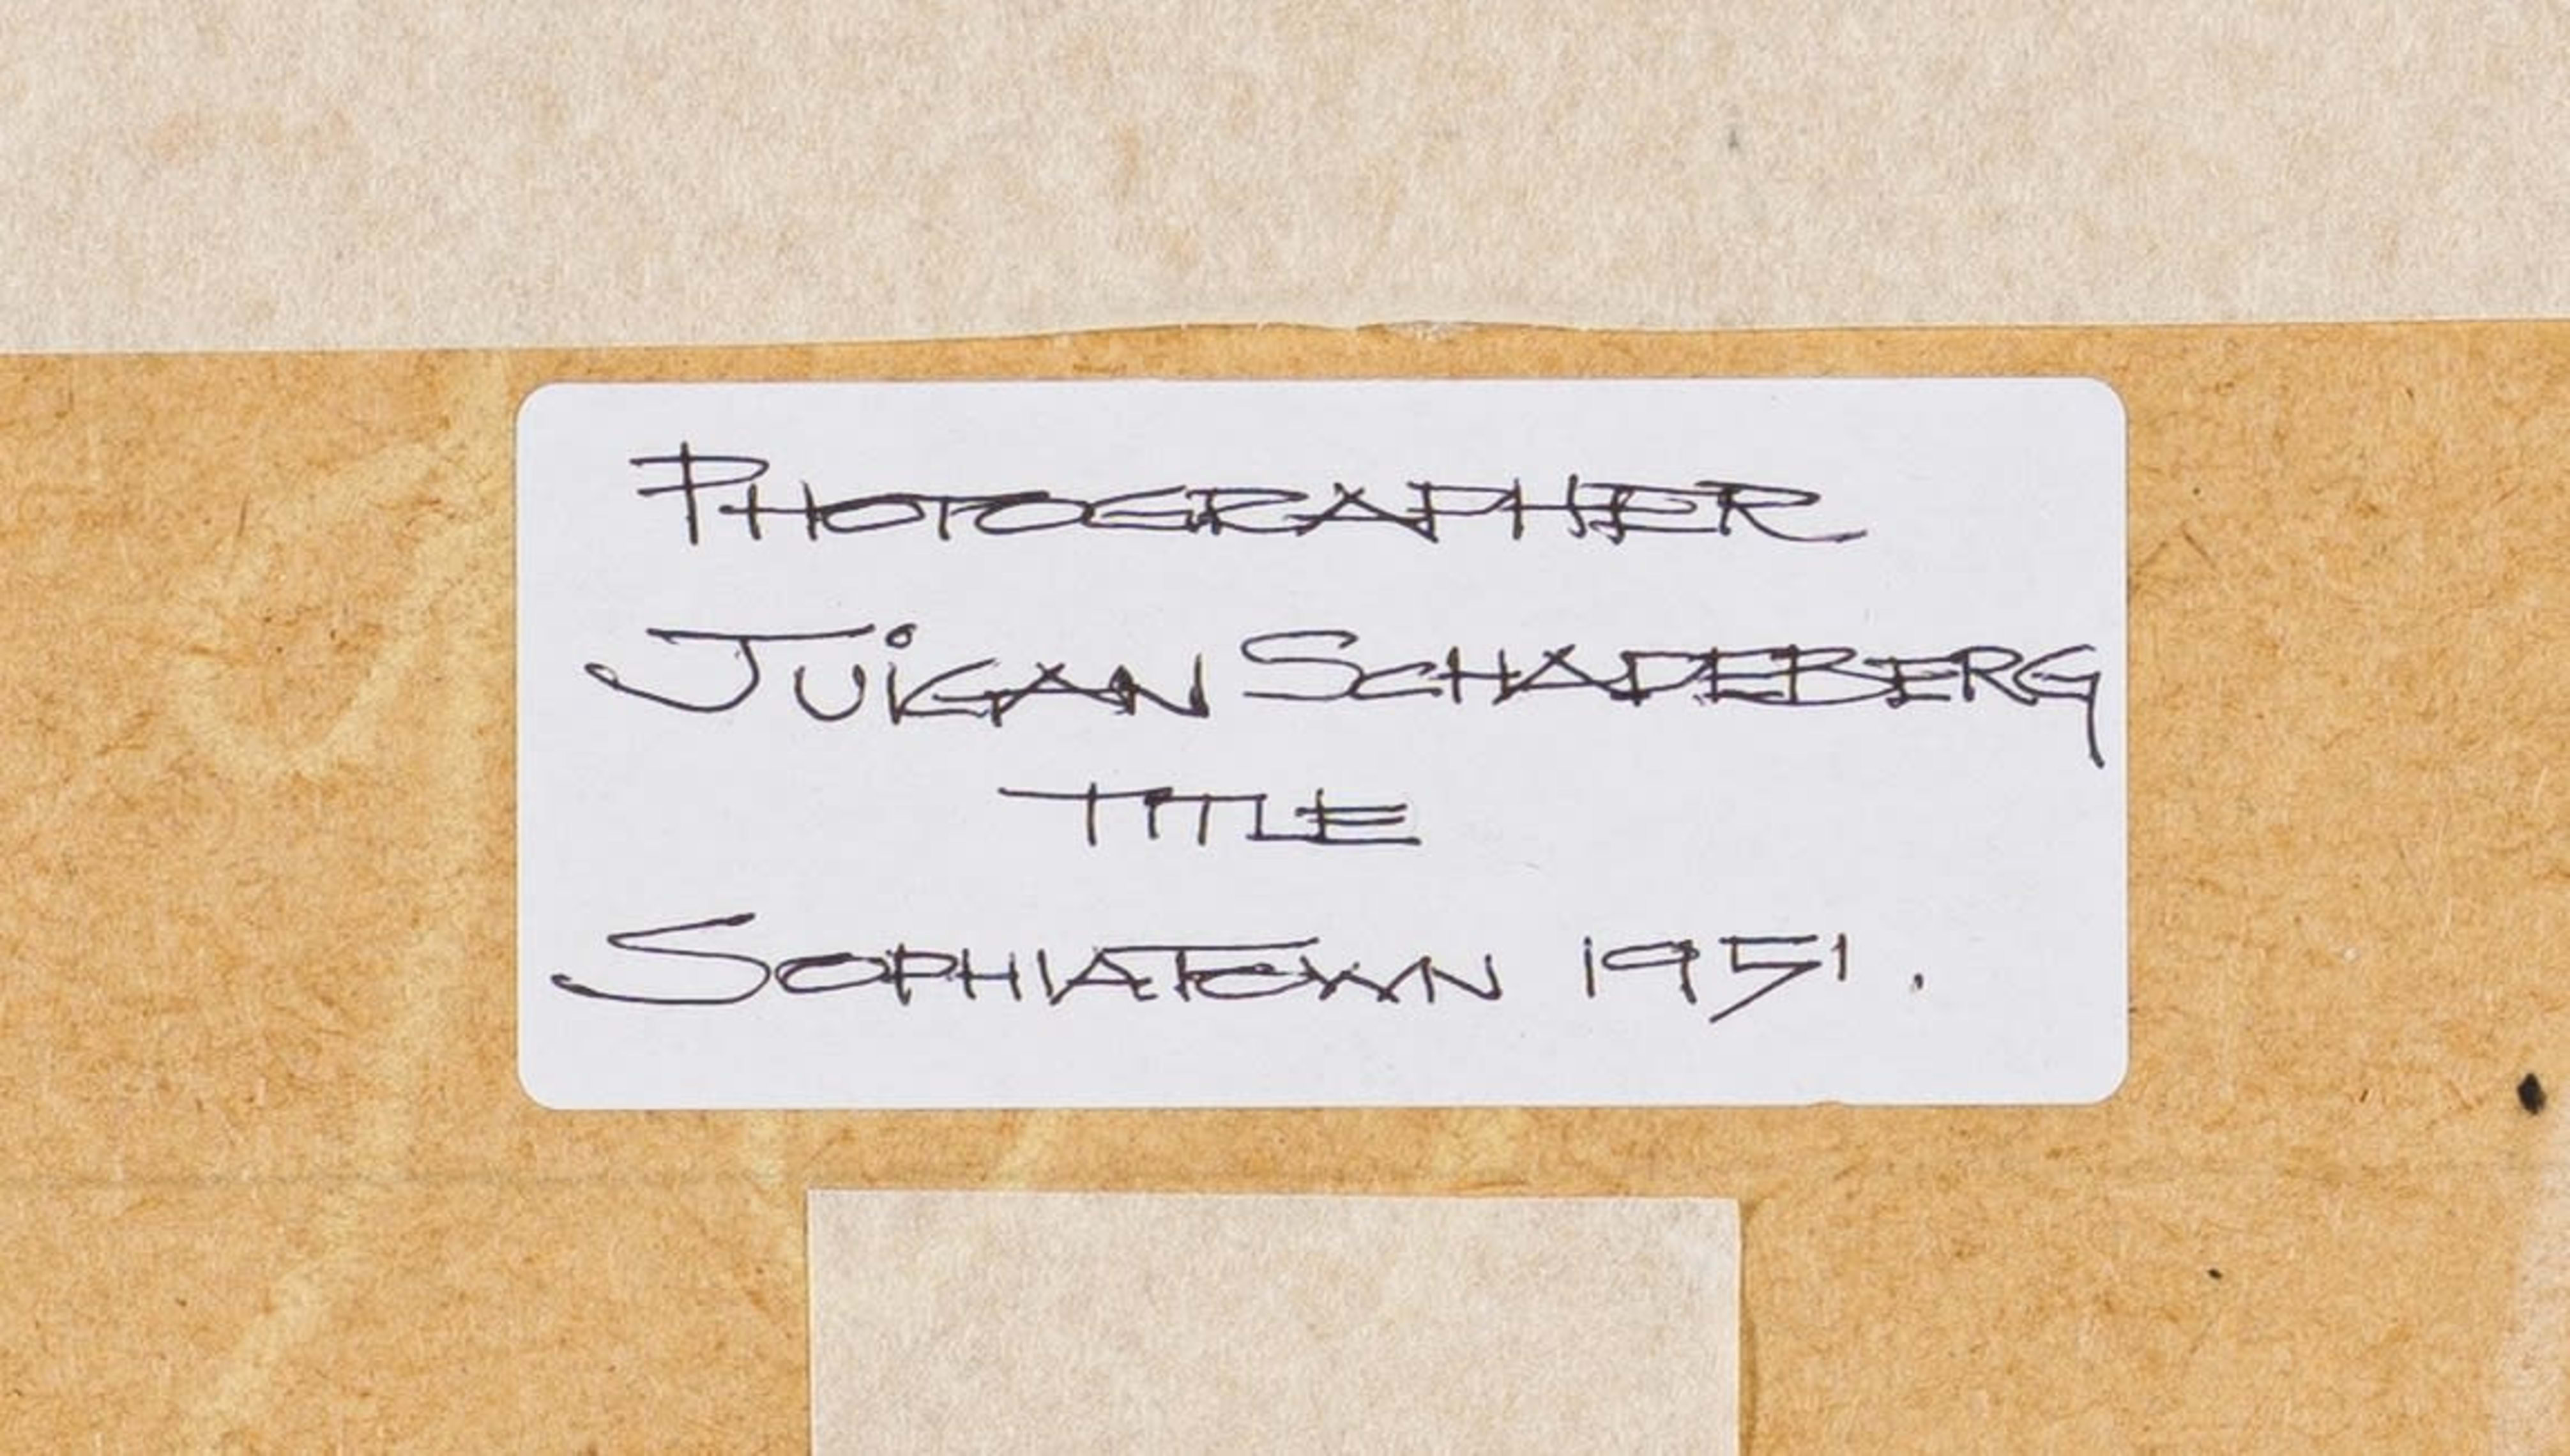 PHOTOGRAPHER
JUIGAN SCHADEBERG
TITLE
SOPHIATOWN 1951.